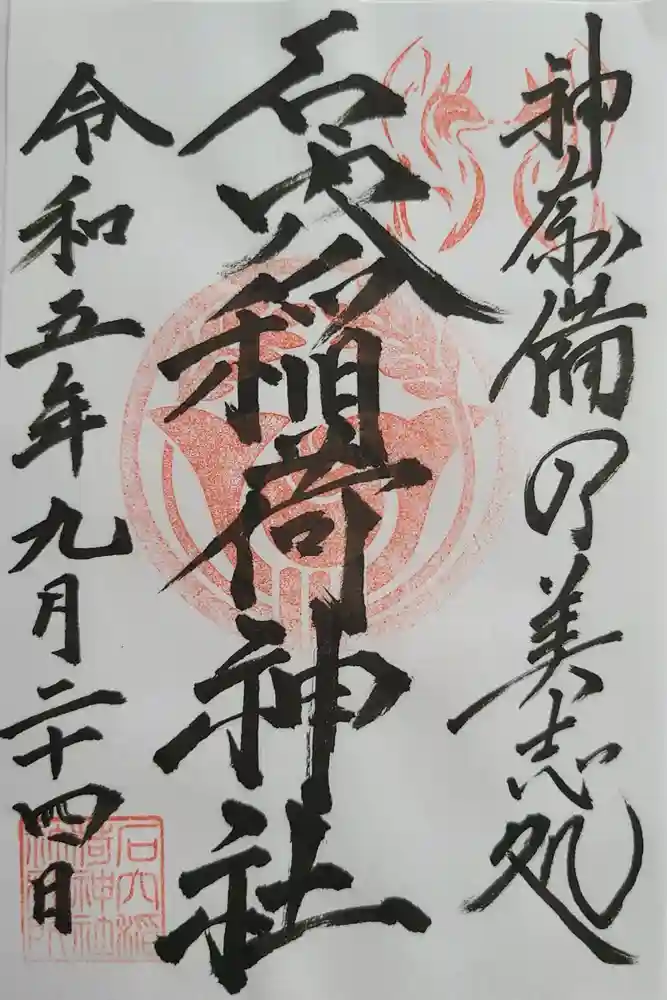 神奈備乃美志処
石穴稲荷神社
令和五年九月二十四日
石穴稲
荷神社